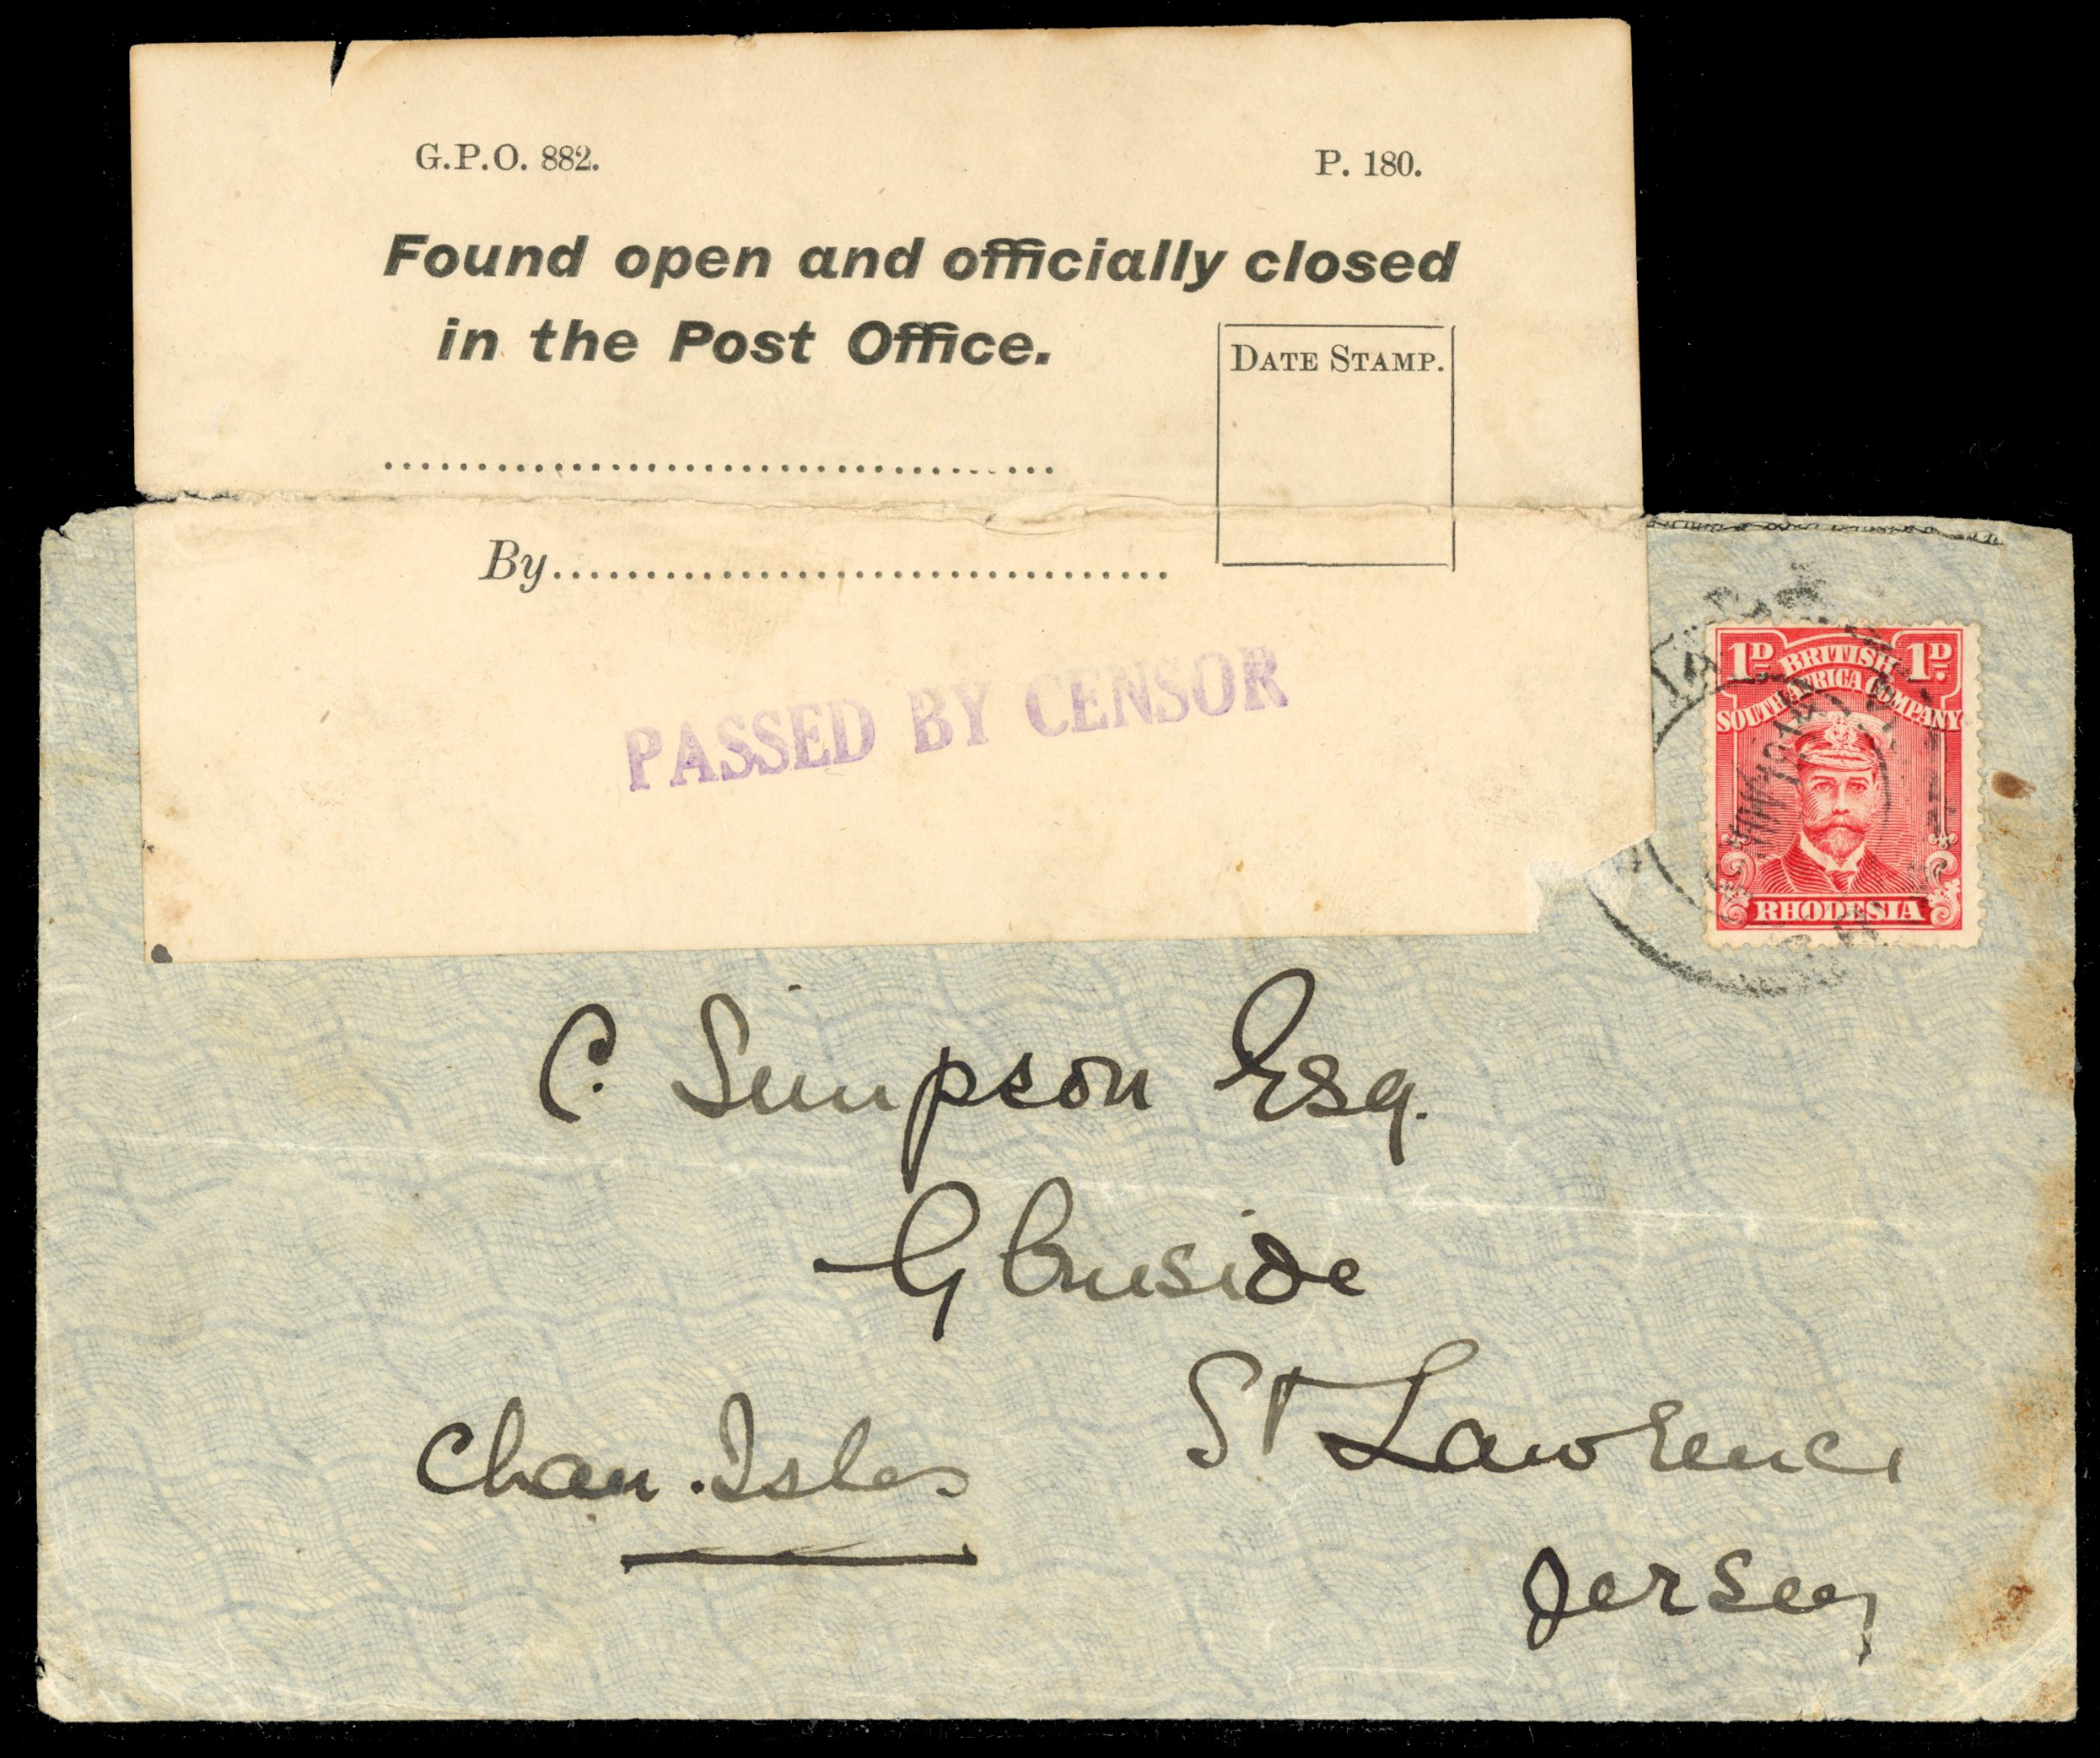 G.P.O. 882. P. 180.
Found open and officially closed
in the Post Office.
DATE STAMP.
By
PASSED BY CENSOR
1D BRITISH 1D
SOUTH AFRICA COMPANY
RHODESIA
C. Simpson Esq.
Glenside
St Lawrence
Chan. Isles
Jersey